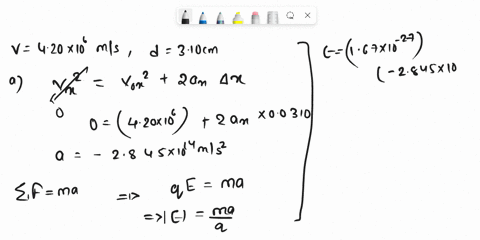 V = 4.20×10⁶ m/s, d = 3.10cm
a) Vₓ² = V₀ₓ² + 2aₙ Δx
0
0 = (4.20×10⁶) + 2aₙ × 0.0310
a = - 2.845×10¹⁴ m/s²
ΣF = ma => qE = ma
=> |E| = ma/q
E = (1.67×10⁻²⁷)
(-2.845×10